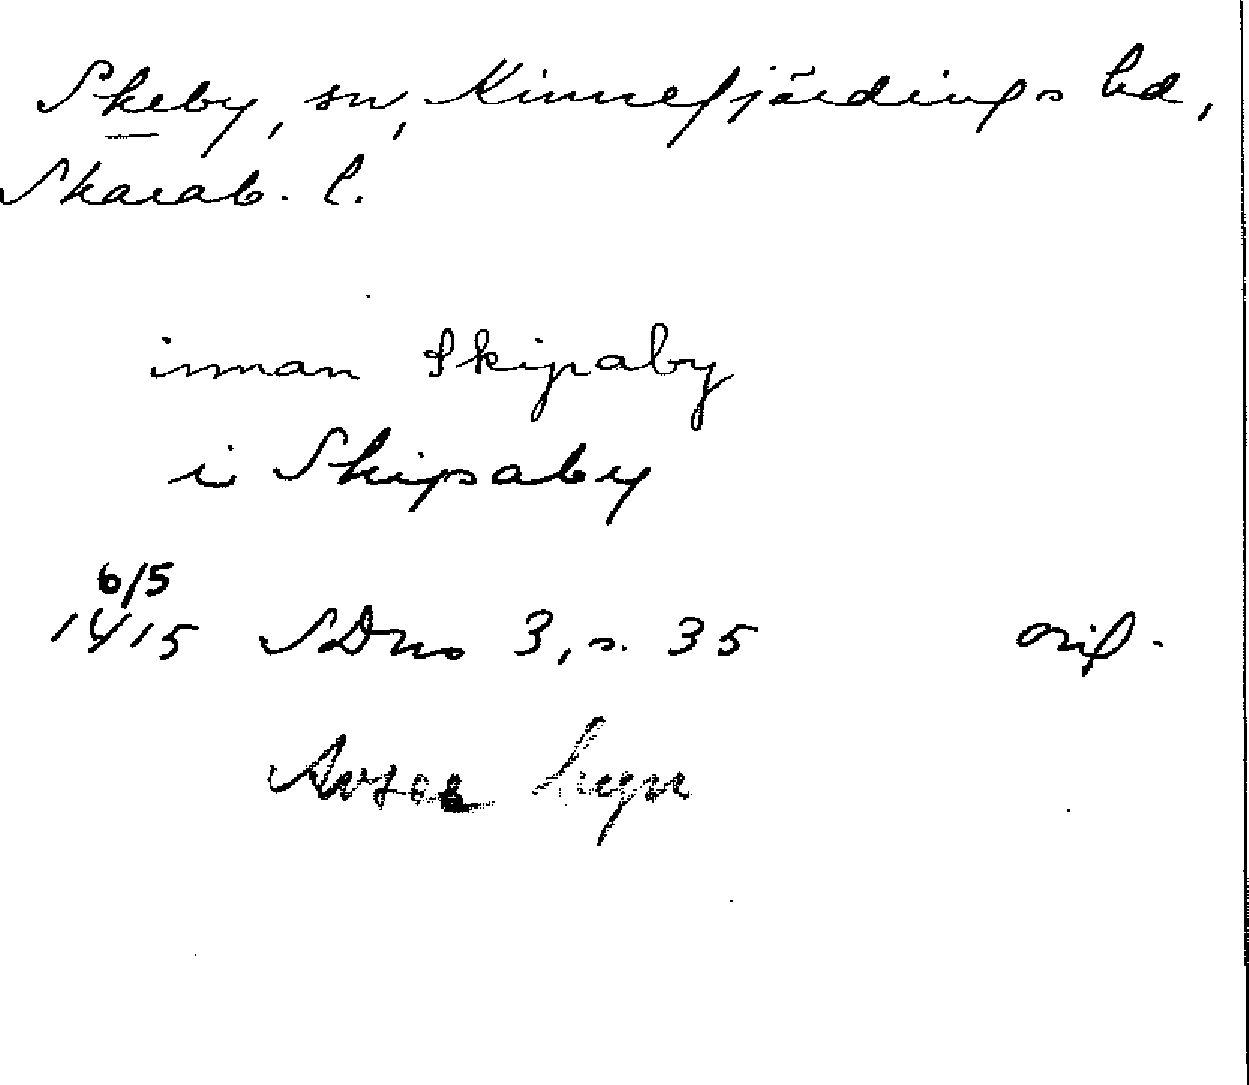 Skeby, sn, Kinnefjärdings hd,
Skarab. l.
innan Skipaby
i Skipaby
6/5
1415 SDns 3, s. 35 orig.
Avser